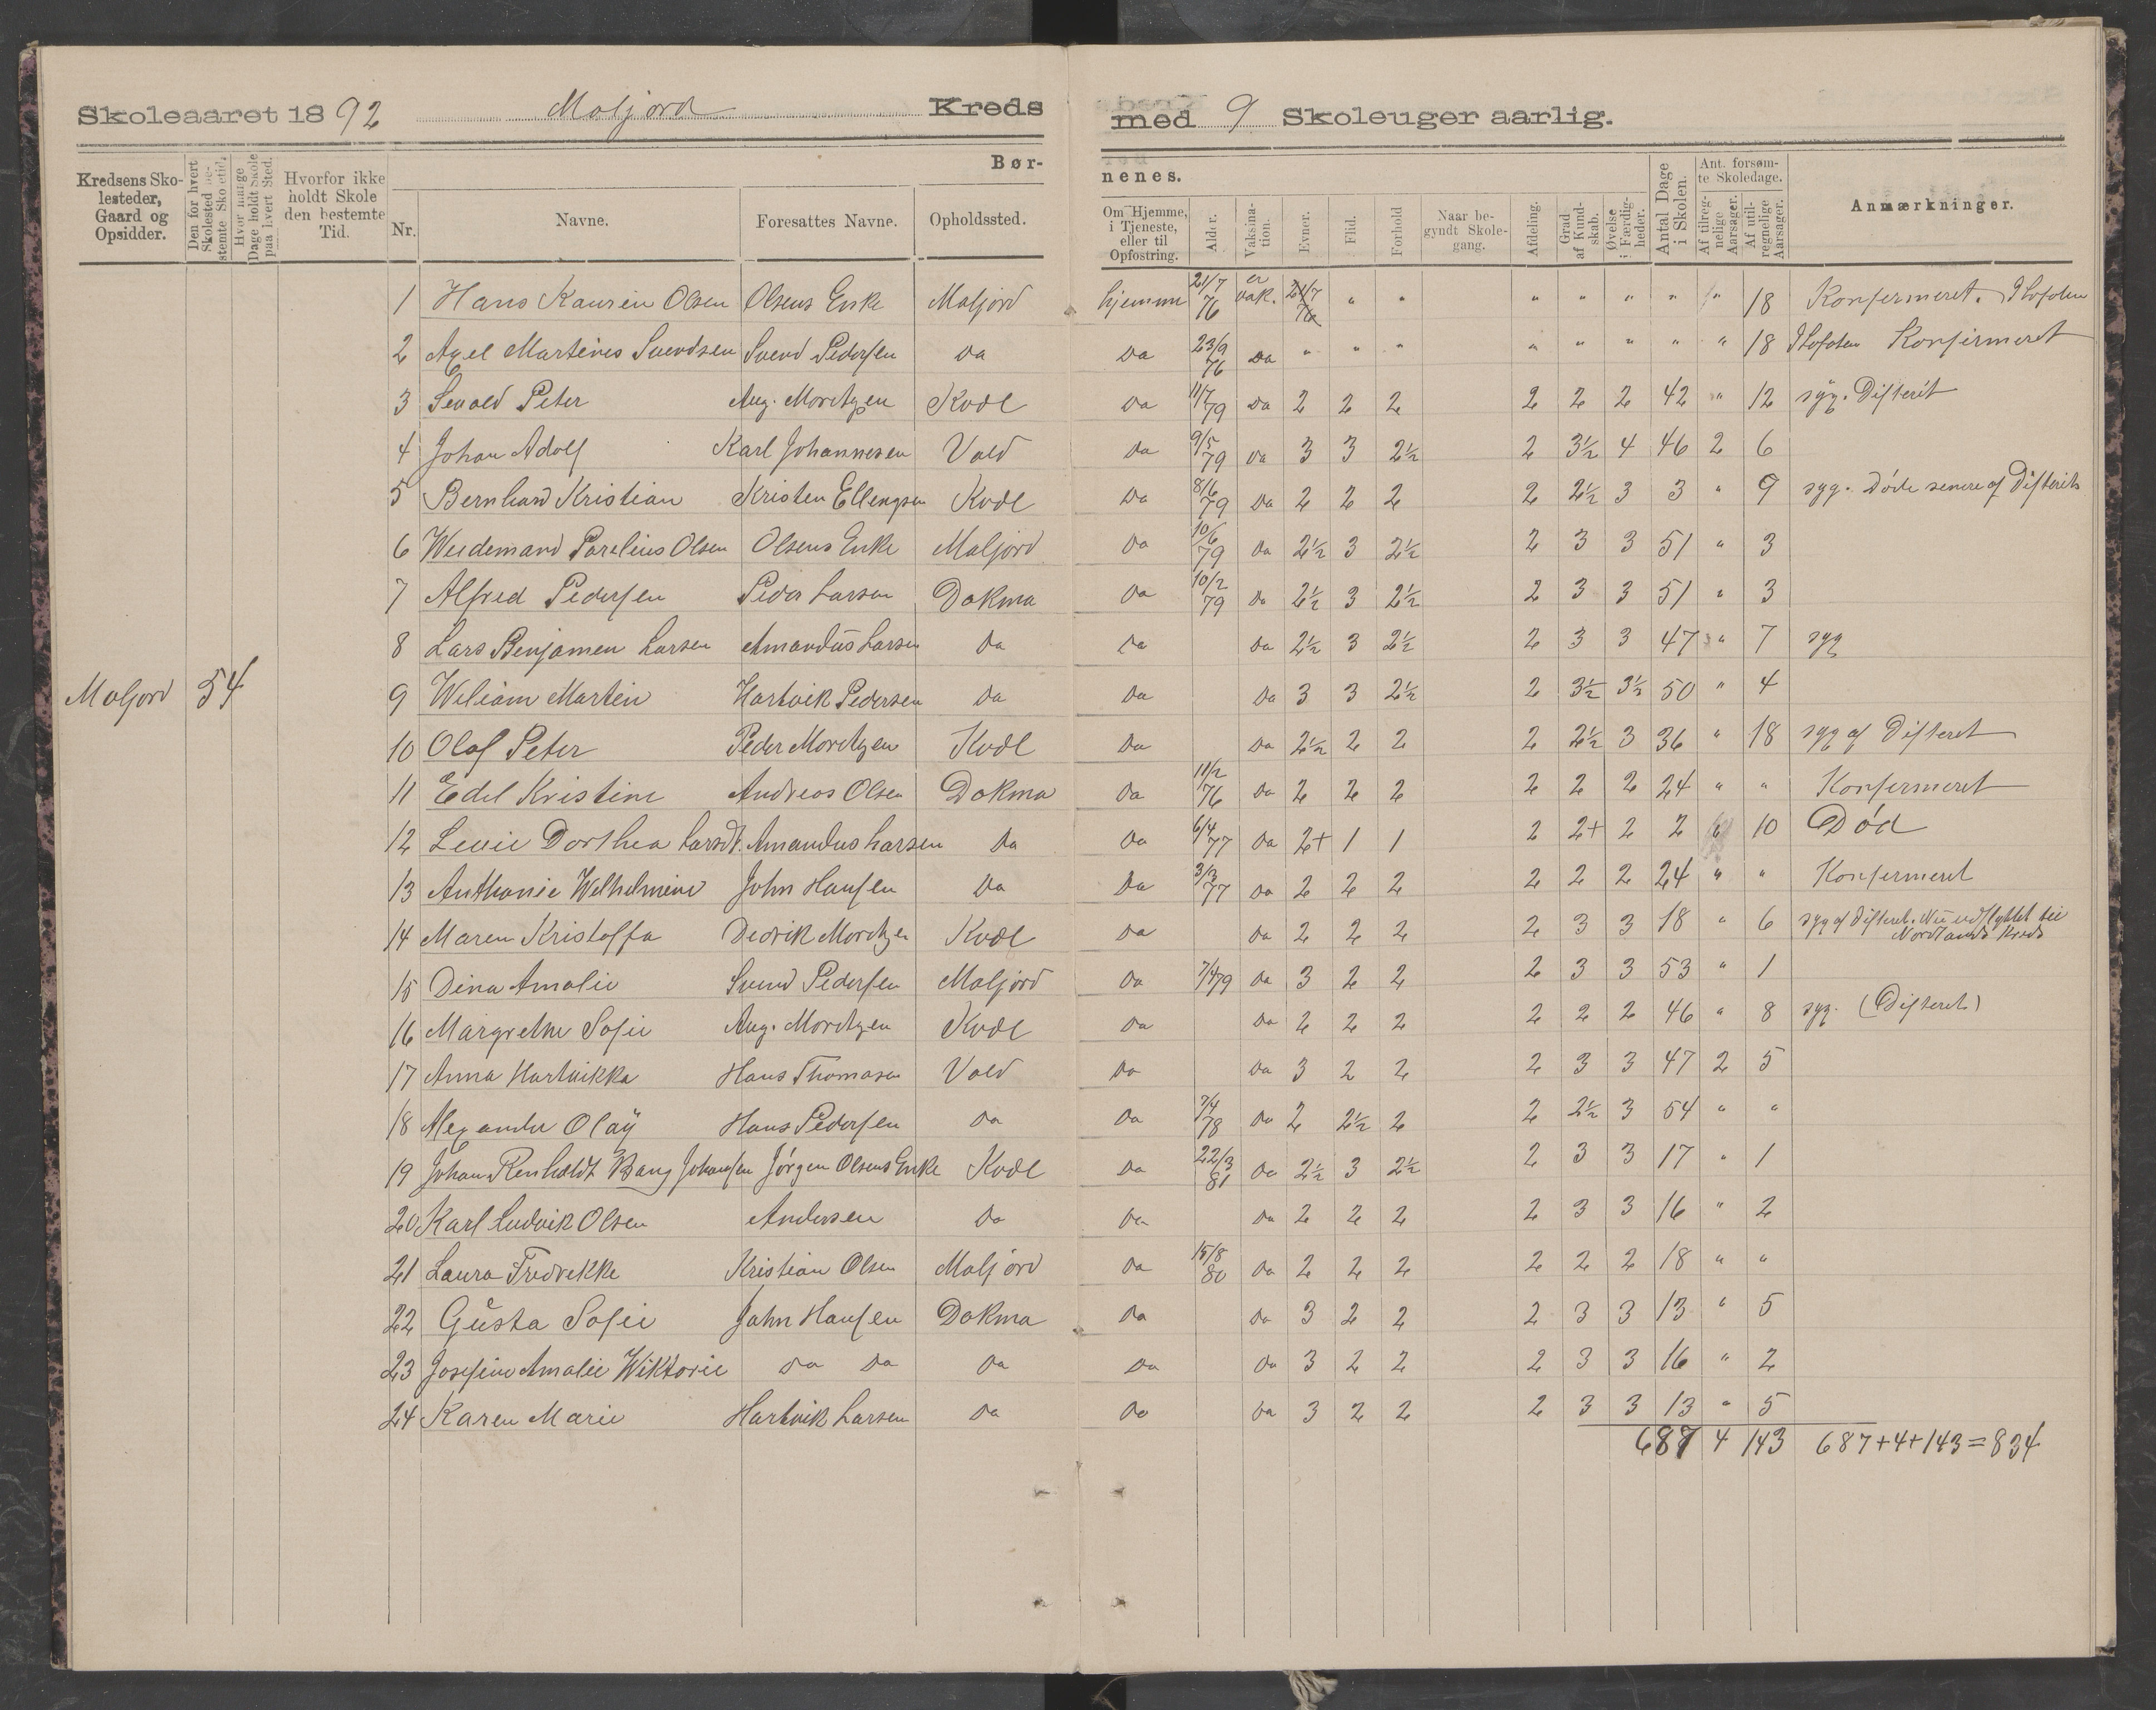 Skoleaaret 1892 Maljord Kreds med 9 Skoleuger aarlig.
Bør- nenes.
Kredsens Skolesteder, Gaard og Opsidder. Den for hvert Skolested bestemte Skoletid. Hvor mange Dage holdt Skole paa hvert Sted. Hvorfor ikke holdt Skole den bestemte Tid. Nr. Navne. Foresattes Navne. Opholdssted. Om Hjemme, i Tjeneste, eller til Opfostring. Alder. Vaksination. Evner. Flid. Forhold Naar begyndt Skolegang. Afdeling. Grad af Kundskab. Øvelse i Færdigheder. Antal Dage i Skolen. Ant. forsømte Skoledage. Af tilregnelige Aarsager. Af utilregnelige Aarsager. Anmærkninger.
1 Hans Olsen Olsens Enke Maljord hjemme 21/7 76 er vak. 21/7 76 " " " " " " " 18 Konfermeret. I Lofoten
2 Axel Martines Svendsen Svend Pedersen Da Da 23/9 76 Da " " " " " " " " 18 I Lofoten Konfirmeret
3 Sevald Peter Aug. Moritzen Kvål Da 11/7 79 Da 2 2 2 2 2 2 42 " 12 syg. Difterit
4 Johan Adolf Karl Johannesen Vold Da 9/5 79 Da 3 3 2½ 2 3½ 4 46 2 6
5 Bernhard Kristian Kristen Ellengsen Kvål Da 8/6 79 Da 2 2 2 2 2½ 3 3 " 9 syg. Døde senere af Difterit
6 Parelius Olsen Olsens Enke Maljord Da 10/6 79 Da 2½ 3 2½ 2 3 3 51 " 3
7 Alfred Pedersen Peder Larsen Dokma Da 10/2 79 Da 2½ 3 2½ 2 3 3 51 " 3
8 Lars Benjamen Larsen Amandus Larsen Da Da Da 2½ 3 2½ 2 3 3 47 " 7 syg
Maljord 54 9 Weliam Martin Hartvik Pedersen Da Da Da 3 3 2½ 2 3½ 3½ 50 " 4
10 Olaf Peter Peder Moritzen Kvål Da Da 2½ 2 2 2 2½ 3 36 " 18 syg af Difteret
11 Edel Kristine Andreas Olsen Dokma Da 11/2 76 Da 2 2 2 2 2 2 24 " " Konfermeret
12 Dorthea Larsdt. Amandus Larsen Da Da 6/4 77 Da 2+ 1 1 2 2+ 2 2 " 10 Død
13 Anthonie Welhelmine John Hansen Da Da 3/3 77 Da 2 2 2 2 2 2 24 " " Konfermeret
14 Maren Kristoffa Dedrik Moritzen Kvål Da Da 2 2 2 2 3 3 18 " 6 syg af Difteret. Nu udflyttet til
Nordlands Kreds
15 Dina Amalie Svend Pedersen Maljord Da 7/4 79 Da 3 2 2 2 3 3 53 " 1
16 Margrethe Sofie Aug. Moritzen Kvål Da Da 2 2 2 2 2 2 46 " 8 syg. (Difteret)
17 Anna Hartvikka Hans Thomasen Vold Da Da 3 2 2 2 3 3 47 2 5
18 Alexander Olaÿ Hans Pedersen Da Da 7/4 78 Da 2 2½ 2 2 2½ 3 54 " "
19 Johan Renholdt Bang Johansen Jørgen Olsens Enke Kvål Da 22/3 81 Da 2½ 3 2½ 2 3 3 17 " 1
20 Karl Ludvik Olsen Andersen Da Da Da 2 2 2 2 3 3 16 " 2
21 Laura Fredrekke Kristian Olsen Maljord Da 15/8 80 Da 2 2 2 2 2 2 18 " "
22 Gusta Sofie John Hansen Dokma Da Da 3 2 2 2 3 3 13 " 5
23 Josefine Amalie Wiktorie Da Da Da Da Da 3 2 2 2 3 3 16 " 2
24 Karen Marie Hartvik Larsen Da Da Da 3 2 2 2 3 3 13 " 5
687 4 143 687+4+143=834